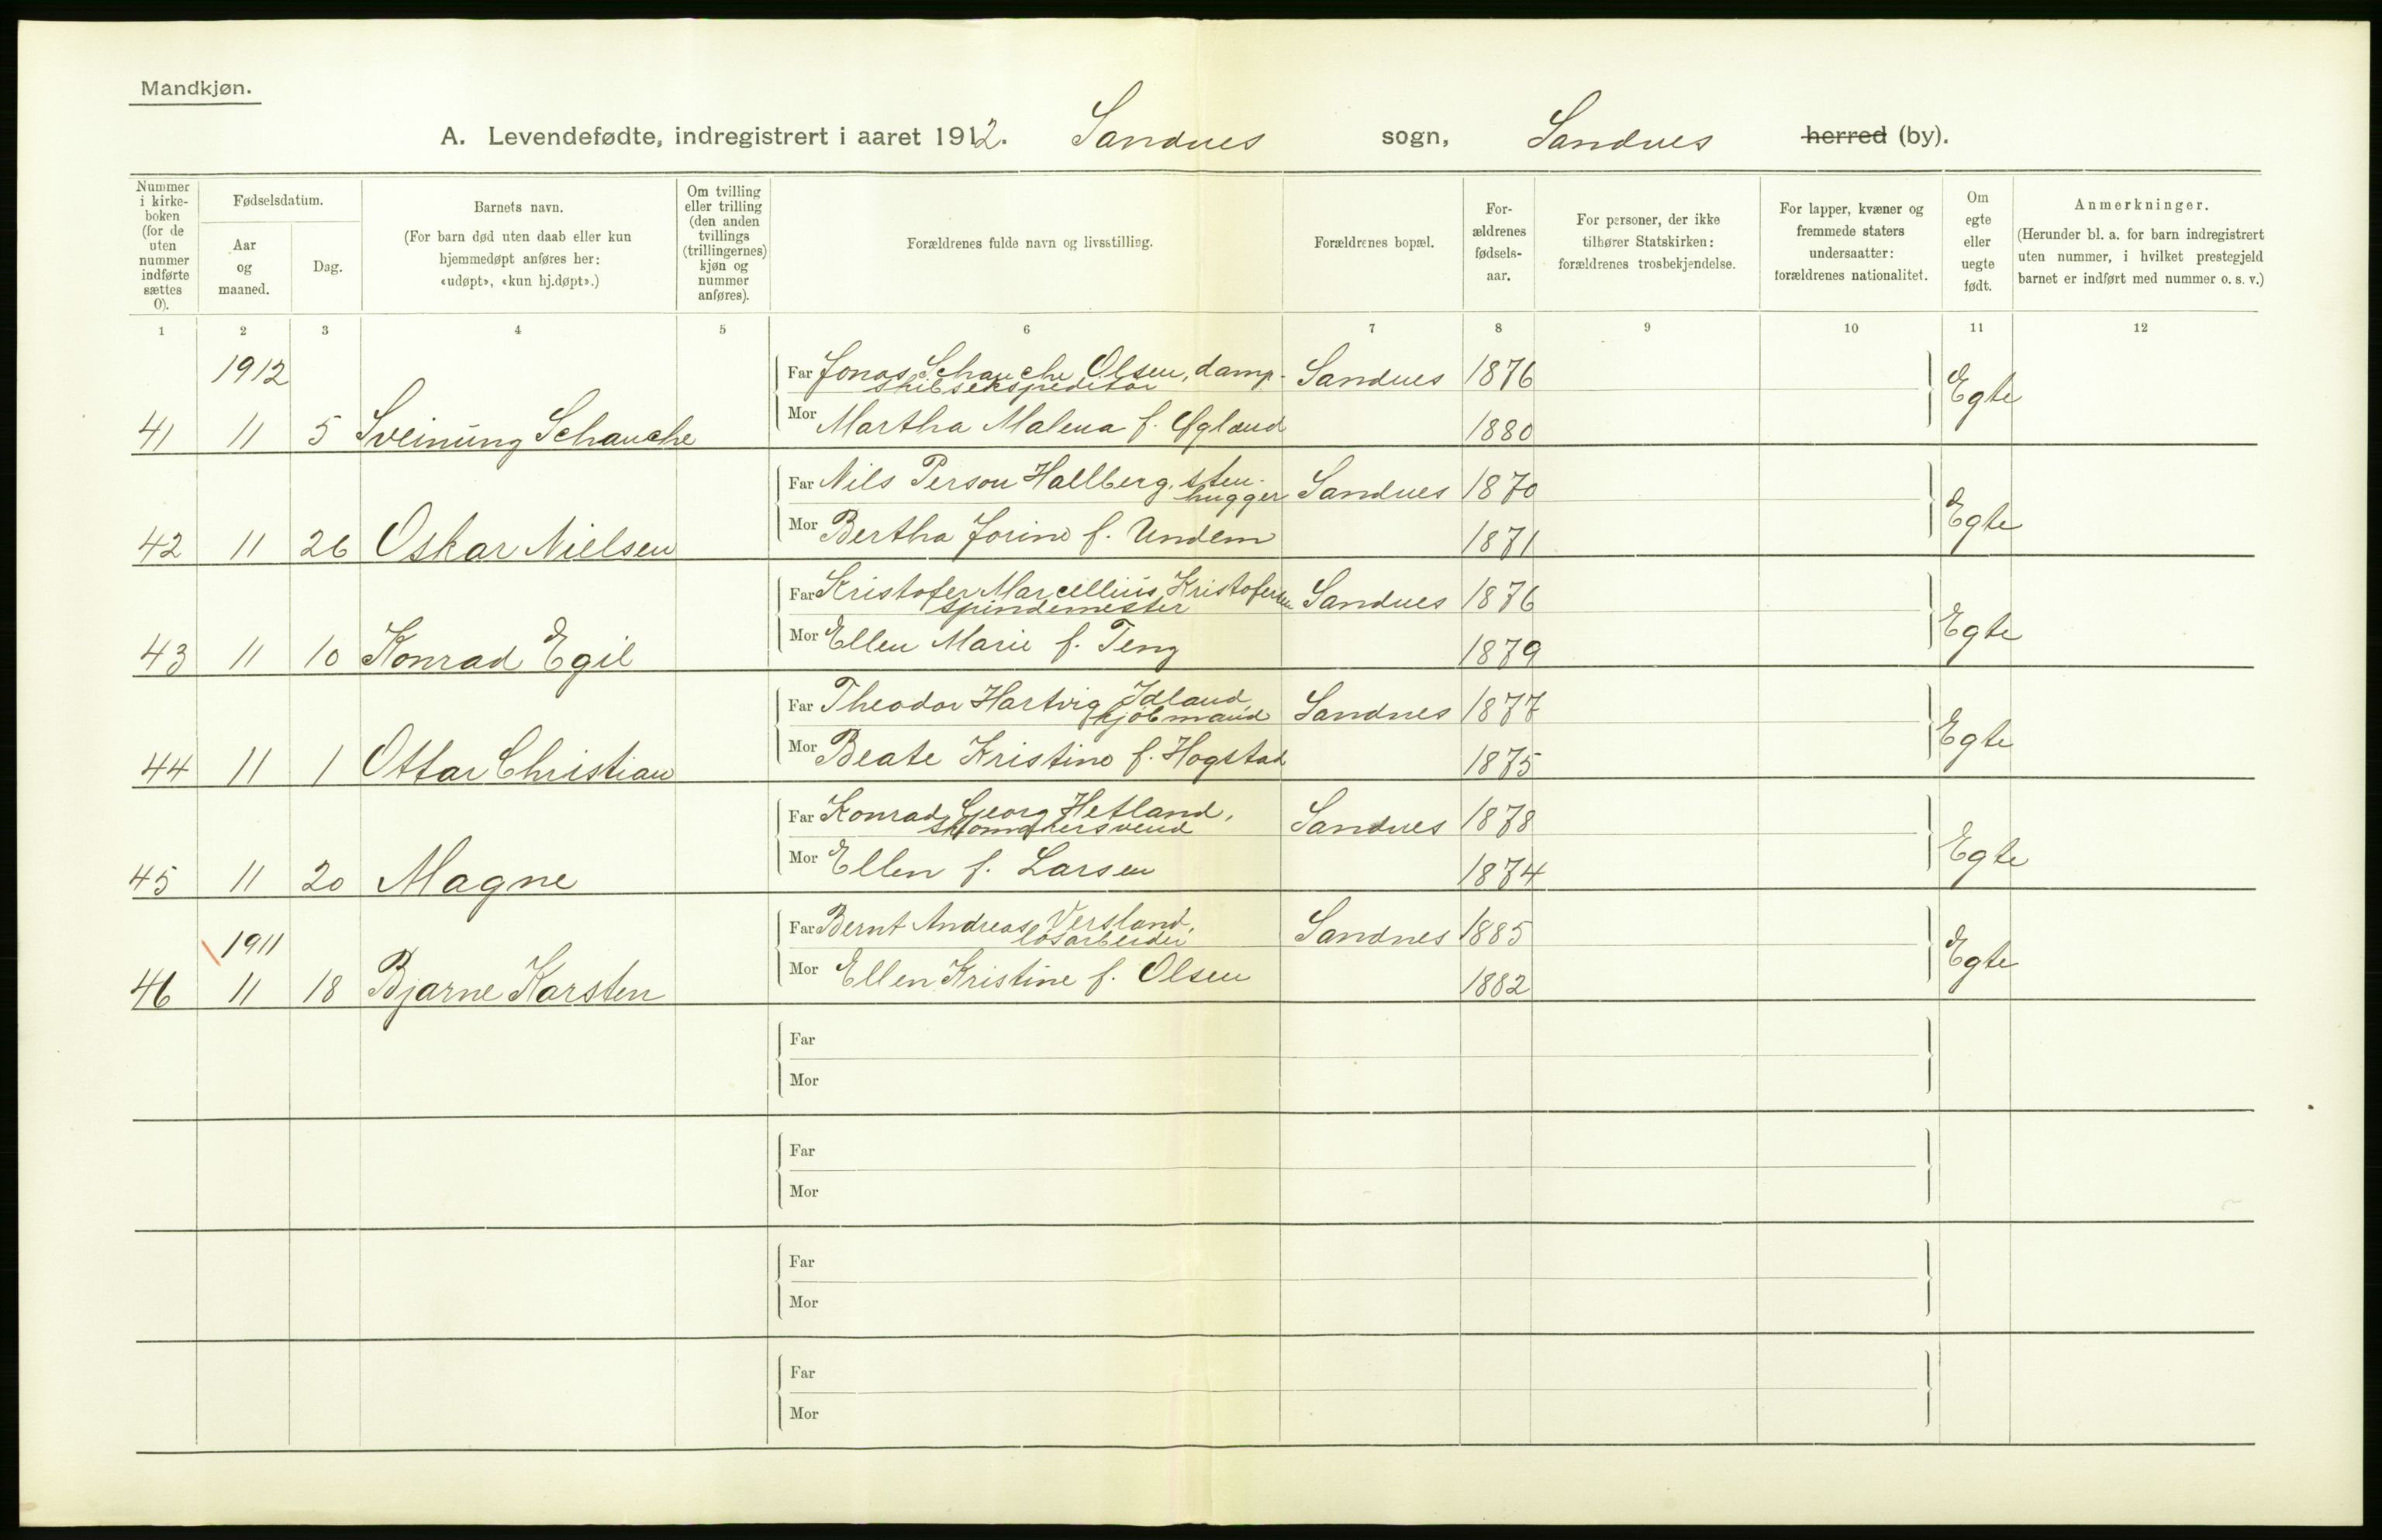 Mandkjøn.
A. Levendefødte, indregistrert i aaret 1912. Sandnes sogn, Sandnes herred (by).
Nummer i kirkeboken (for de uten nummer indførte sættes 0).
Fødselsdatum.
Aar og maaned.
Dag.
Barnets navn.
(For barn død uten daab eller kun hjemmedøpt anføres her: «udøpt», «kun hj.døpt».)
Om tvilling eller trilling (den anden tvillings (trillingernes) kjøn og nummer anføres).
Forældrenes fulde navn og livsstilling.
Forældrenes bopæl.
For-
ældrenes
fødsels-
aar.
For personer, der ikke
tilhører Statskirken:
forældrenes trosbekjendelse.
For lapper, kvæner og
fremmede staters
undersaatter:
forældrenes nationalitet.
Om
egte
eller
uegte
født.
Anmerkninger.
(Herunder bl. a. for barn indregistrert
uten nummer, i hvilket prestegjeld
barnet er indført med nummer o. s. v.)
1 2 3 4 5 6 7 8 9 10 11 12
1912 Far Jonas Schanche Olsen, damp- Sandnes 1876 Egte
skibsekspeditør
41 11 5 Sveinung Schanche Mor Martha Malena f. Øgland 1880
Far Nils Person Hallberg, sten- Sandnes 1870 Egte
hugger
42 11 26 Oskar Nielsen Mor Bertha Jorine f. Undem 1871
Far Kristofer Marcellius Kristofersen Sandnes 1876 Egte
spindemester
43 11 10 Konrad Egil Mor Ellen Marie f. Teng 1879
Far Theodor Hartvig Idland, Sandnes 1877 Egte
kjøbmand
44 11 1 Ottar Christian Mor Beate Kristine f. Hogstad 1875
Far Konrad Georg Hetland, Sandnes 1878 Egte
skomakersvend
45 11 20 Magne Mor Ellen f. Larsen 1874
1911 Far Bernt Andreas Versland, Sandnes 1885 Egte
løsarbeider
46 11 18 Bjarne Karsten Mor Ellen Kristine f. Olsen 1882
Far
Mor
Far
Mor
Far
Mor
Far
Mor